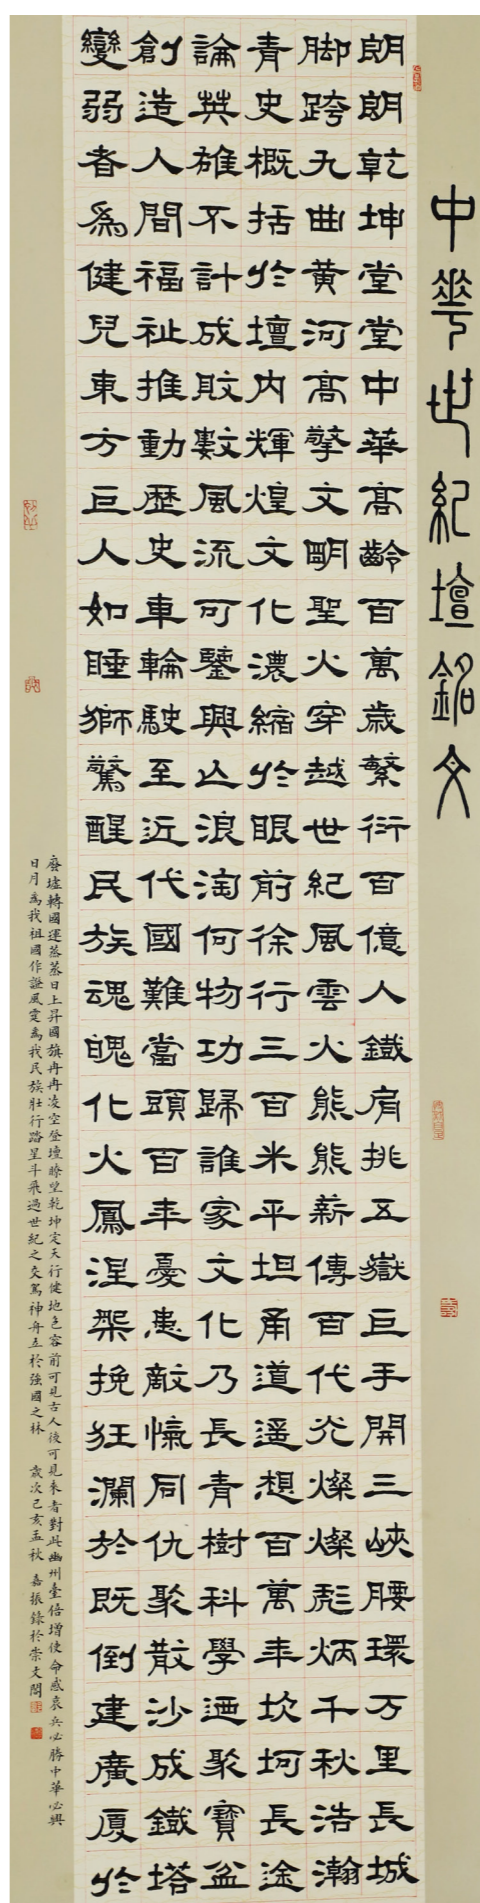 中華世紀壇銘文
朗朗乾坤堂堂中華高齡百萬歲繁衍百億人鐵肩挑五嶽巨手開三峽腰環万里長城
脚跨九曲黃河高擎文明聖火穿越世紀風雲火熊熊薪傳百代光燦燦彪炳千秋浩瀚
青史概括於壇內輝煌文化濃縮於眼前徐行三百米平坦甬道遥想百萬年坎坷長途
論英雄不計成敗數風流可鑒興亡浪淘何物功歸誰家文化乃長青樹科學迺聚寶盆
創造人間福祉推動歷史車輪駛至近代國難當頭百年憂患敵愾同仇聚散沙成鐵塔
變弱者為健兒東方巨人如睡獅驚醒民族魂魄化火鳳涅槃挽狂瀾於既倒建廣廈於
廢墟轉國運蒸蒸日上昇國旗冉冉凌空登壇瞭望乾坤定天行健地色容前可見古人後可見來者對此幽州臺倍增使命感哀兵必勝中華必興
日月為我祖國作證風雲為我民族壯行踏星斗飛過世紀之交駕神舟立於強國之林 歲次己亥孟秋 嘉振錄於崇文閣